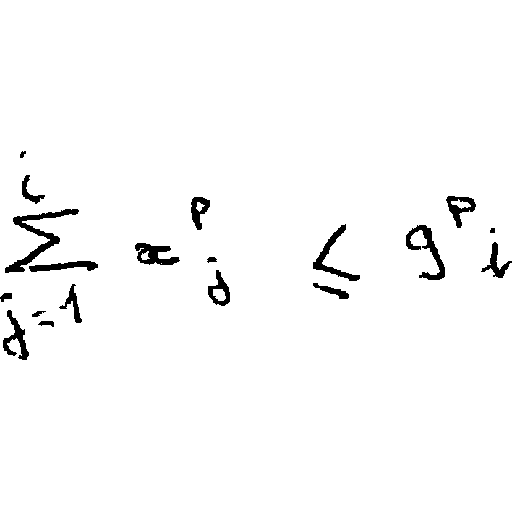 \sum_{j=1}^{i} x_j^p \leq g^p i